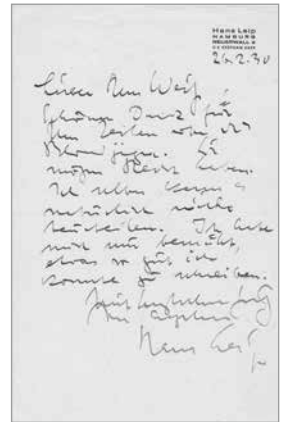 Hans Leip
HAMBURG
26.2.30
Lieber Herr Weiß,
Schönen Dank für
Ihre Zeilen über
Sie
mögen Recht haben.
Ich selber kann es
natürlich nicht
beurteilen. Ich habe
mich nur bemüht,
etwas so gut ich
konnte zu schreiben.
Ihr
Hans Leip